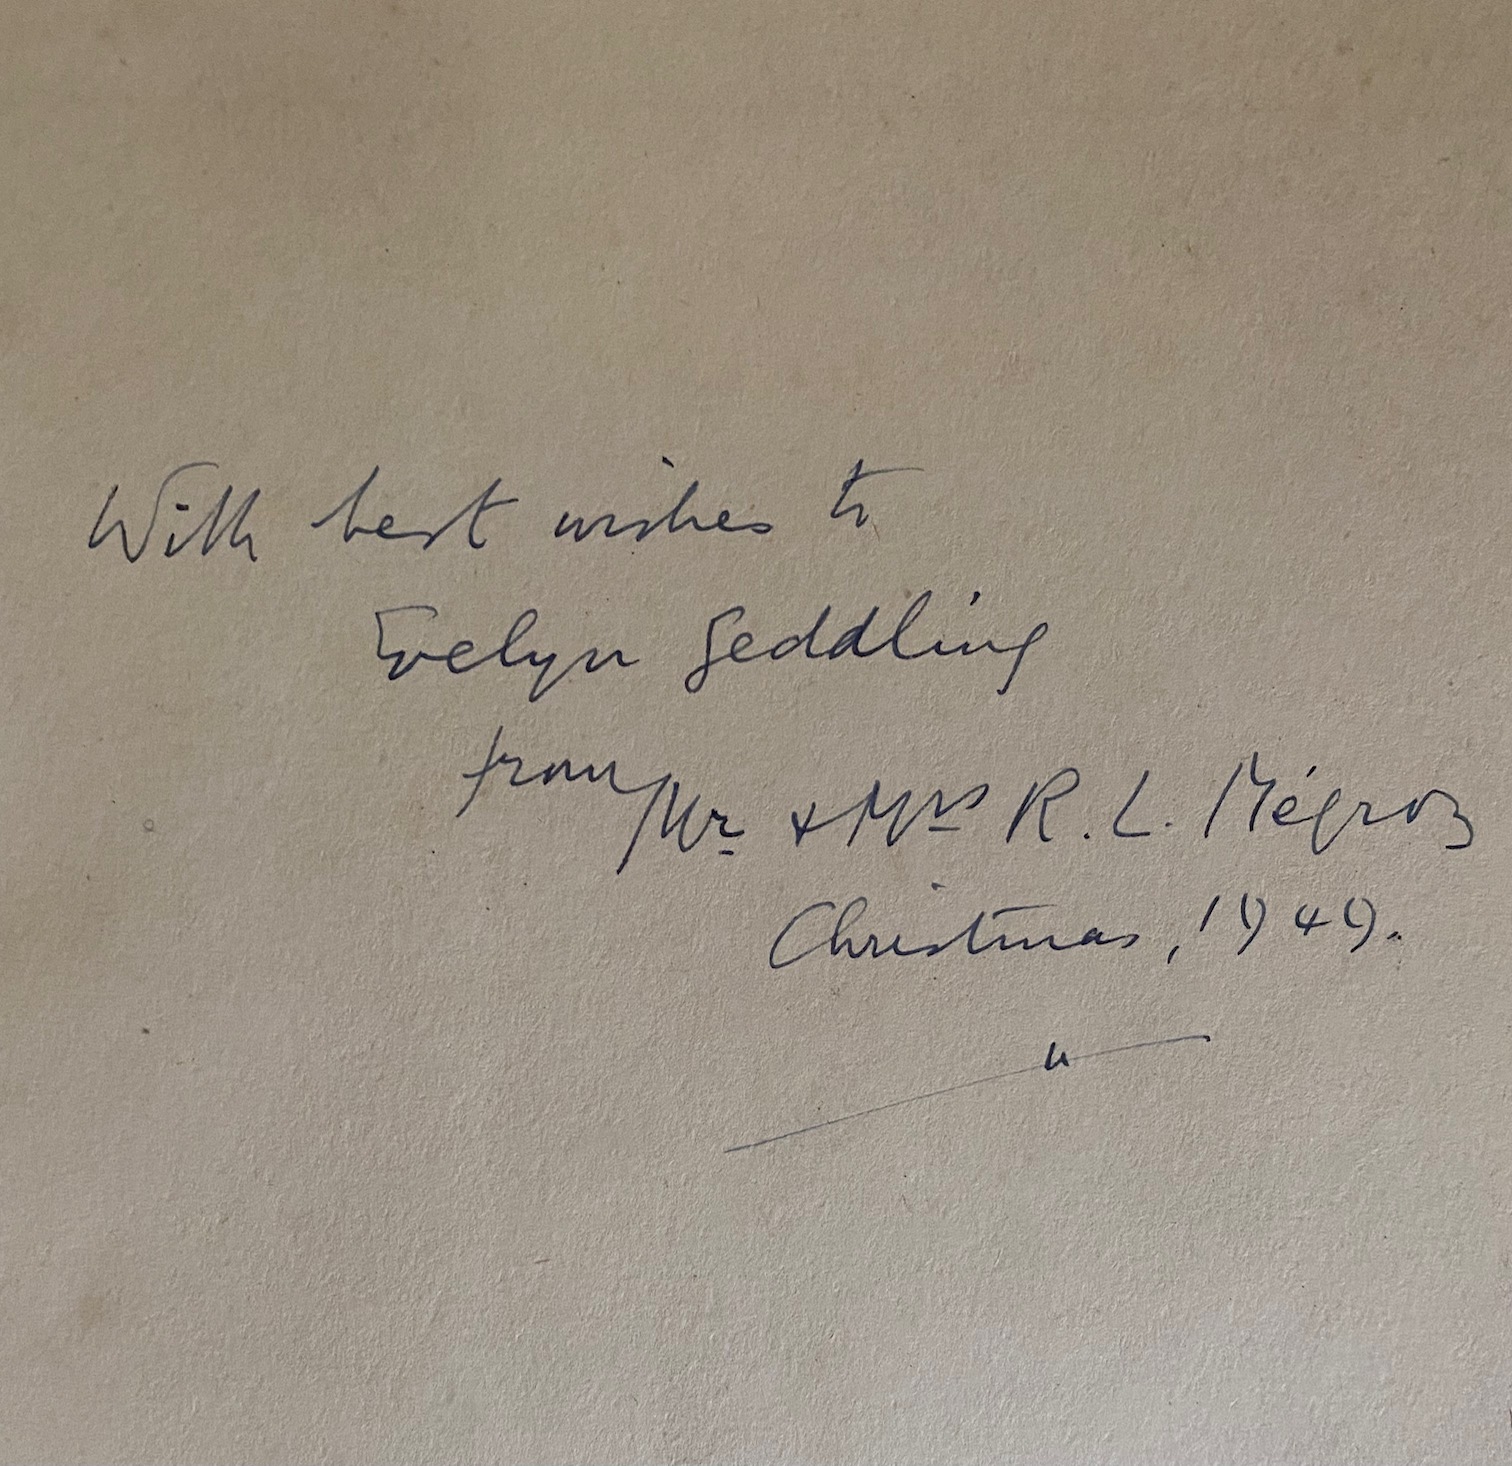 With best wishes to
Evelyn Geddling
from Mr & Mrs R. L. Mégroz
Christmas, 1949.